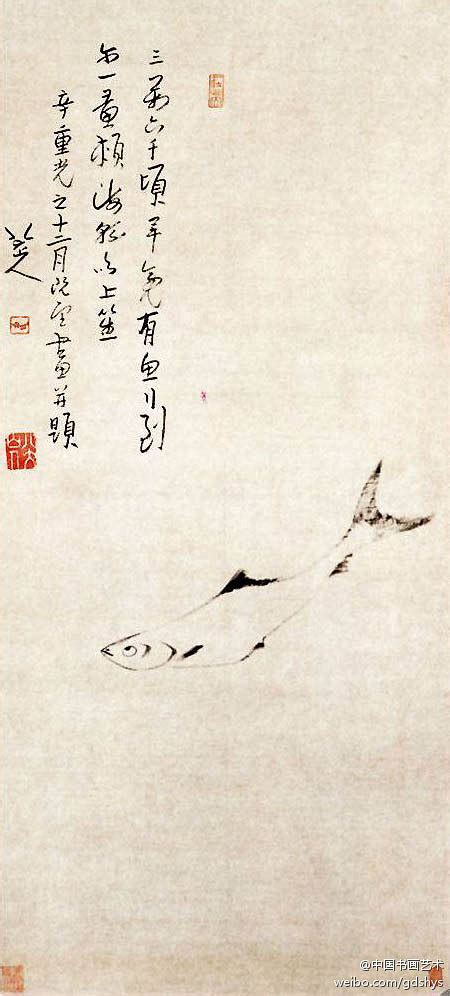 三萬六千頃畢竟有魚行到
尔一黃頰海綿吹上笙
辛重光之十二月既望畫并題
八大山人
@中国书画艺术
weibo.com/gdshys